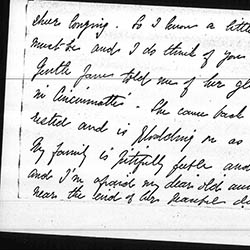 sheer longing. So I know a little
must be and I do think of you
Gentle Jane told me of her gl
in Cincinnati. She came back
rested and is plodding on as
My family is pitifully feeble and
and I'm afraid my dear old aun
nears the end of her beautiful d